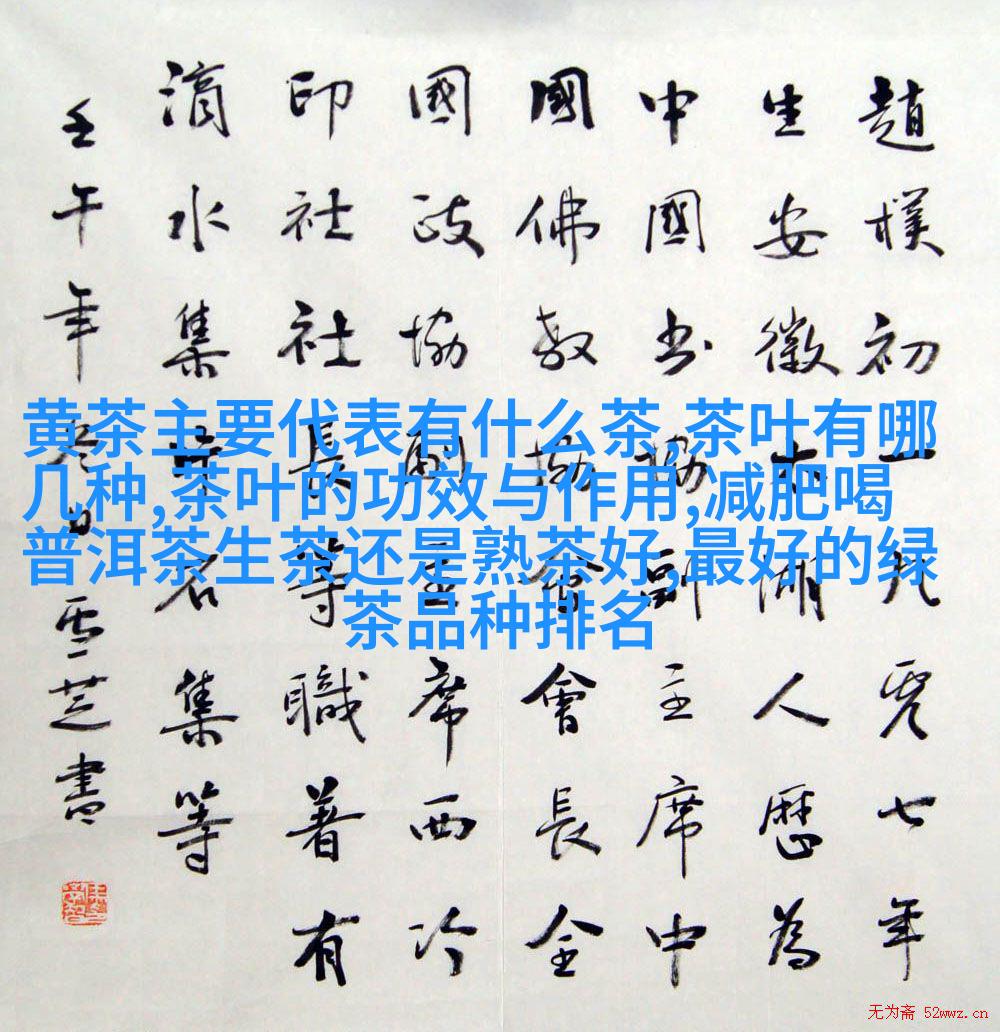 黄茶主要代表有什么茶,茶叶有哪
几种,茶叶的功效与作用,减肥喝
普洱茶生茶还是熟茶好,最好的绿
茶品种排名
趙樸初一九零七年
生安徽太湖人歷為
中國书協副主席中
國佛教協會會長全
國政協副主席西泠
印社社長等職著有
滴水集片石集等
壬午年冬日雪芝書
无为斋 52wwz.cn